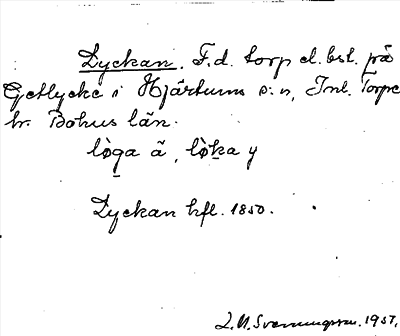 Lyckan. F.d. torp el. bst. på
Getlycke i Hjärtums s:n, Inl. Torpe
hr. Bohus län.
lòga ã, lòka y
Lyckan hfl. 1850.
1957.